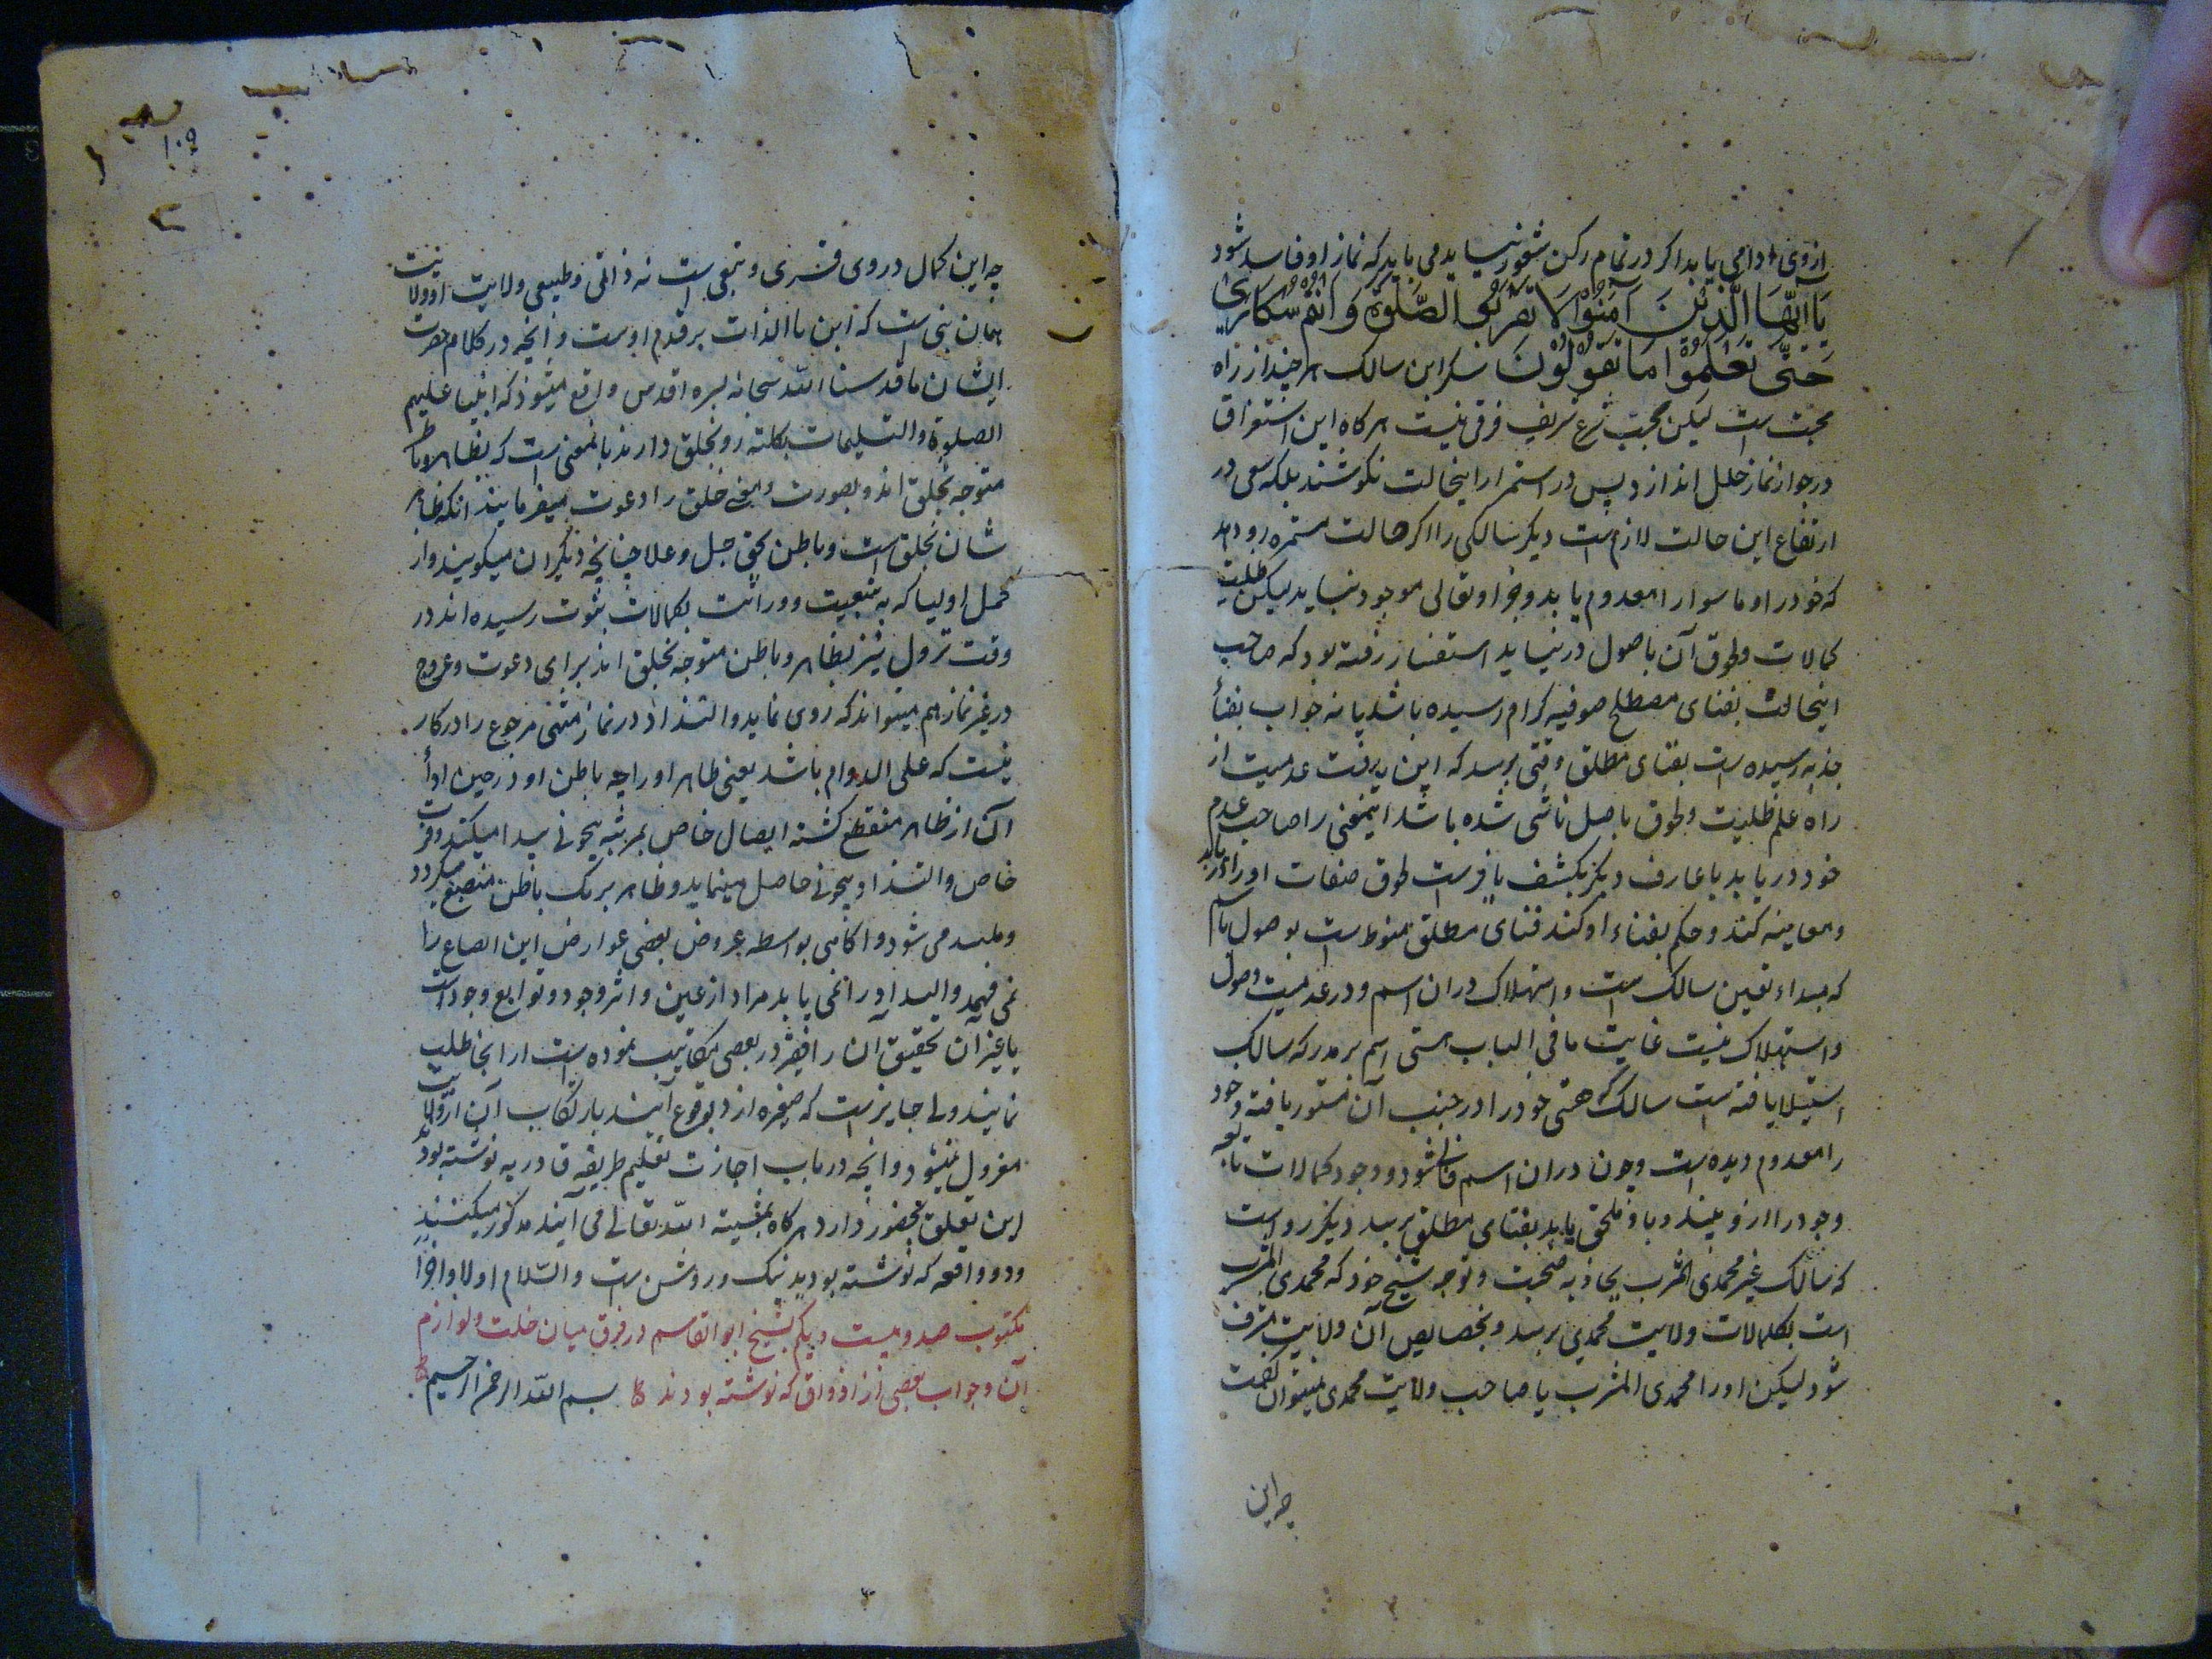 ازوی ادا می یابد اگر در تمام رکن شعور نیاید می باید که نماز او فاسد شود
یَا اَیُّهَا الَّذِیْنَ آمَنُوْا لَا تَقْرَبُوا الصَّلٰوةَ وَ اَنْتُمْ سُکَارٰی
حَتّٰی تَعْلَمُوْا مَا تَقُوْلُوْنَ سکر این سالک هر چند از راه
محبت است لیکن محبت شرع شریف فرقی نیست هرگاه این استغراق
در جواز نماز خلل اندازد پس در استمرار اینحالت نکوشند بلکه سعی در
ارتفاع این حالت لازم است دیگر سالکی را اگر حالت مستمره رو دهد
که خود را و ماسوا را معدوم یابد و جز او تعالی موجود نیابد لیکن ظلیت
کمالات و لحوق آن باصول در نیابد استفسار رفته بود که صاحب
اینحالت بفنای مصطلح صوفیه کرام رسیده باشد یا نه جواب بفنأ
جذبه رسیده است بفنای مطلق وقتی برسد که این دید عدمیت از
راه علم ظلیت و لحوق باصل ناشی شده باشد اینمعنی را صاحب عدم
خود دریابد یا عارف دیگر بکشف یا فراست لحوق صفات او را دریابد
و معاینه کند و حکم بفناء او کند فنای مطلق منوط است بوصول باسم
که مبداء تعین سالک است و استهلاک در ان اسم و در عدمیت وصول
و استهلاک نیست غایت ما فی الباب هستی اسم بر مدرکه سالک
استیلا یافته است سالک هستی خود را در جنب آن مستور یافته وجود
را معدوم دیده است و چون در ان اسم فانی شود و وجود کمالات تابعه
وجود را ازو بیند و باو ملحق یابد بفنای مطلق برسد دیگر رواست
که سالک غیر محمدی المشرب بجاذبه صحبت و توجه شیخ خود که محمدی المشرب
است بکمالات ولایت محمدی برسد و بخصایص آن ولایت مشرف
شود لیکن او را محمدی المشرب یا صاحب ولایت محمدی نمیتوان گفت
چه این
۱۰۹
۳
چه این کمال در وی قسری و تبعی است نه ذاتی و طبیعی ولایت او ولایت
همان نبی است که این بالذات بر قدم اوست و آنچه در کلام حضرت
ایشان ما قدسنا الله سبحانه بسره اقدس واقع میشود که انبیا علیهم
الصلوة والتسلیمات بکلیته رو بخلق دارند بانمعنی است که بظاهر و باطن
متوجه بخلق اند و بصورت و معنی خلق را دعوت میفرمایند آنکه ظاهر
شان بخلق است و باطن بحق جل و علا چنانچه دیگران میگویند و از
کمل اولیا که به تبعیت و وراثت بکمالات نبوت رسیده اند در
وقت نزول نیز بظاهر و باطن متوجه بخلق اند برای دعوت و عروج
در غیر نماز هم میتواند که روی نماید و التذاذ در نماز منتهی مرجوع را در کار
نیست که علی الدوام باشد یعنی ظاهر او را چه باطن او در حین اداأ
آن از ظاهر منقطع گشته ایصال خاص بمرتبه بیچونی پیدا میکند و قرب
خاص و التذاذ بیچونی حاصل مینماید و ظاهر برنگ باطن منصبغ میگردد
و ملتبذ می شود و گاهی بواسطه عروض بعضی عوارض این انصباغ را
نمی فهمد و التذاذ را نمی یابد مراد از عین و اثر وجود و توابع وجود است
یا غیر آن تحقیق آن را فقیر در بعضی مکاتیب نموده است از آنجا طلب
نمایند ولی جایز است که صغیره ازو بوقوع آید بارتکاب آن از ولایت
معزول نمیشود و آنچه در باب اجازت تعلیم طریقه قادریه نوشته بودند
این تعلق بحضور دارد هرگاه بمشیة الله تعالی می آیند مذکور میکنند
و دو واقعه که نوشته بودید نیک و روشن است والسلام اولا و آخرا
مکتوب صد و بیست و یکم بشیخ ابو القاسم در فرق میان خلت و لوازم
آن و جواب بعضی از اذواق که نوشته بودند بسم الله الرحمن الرحیم